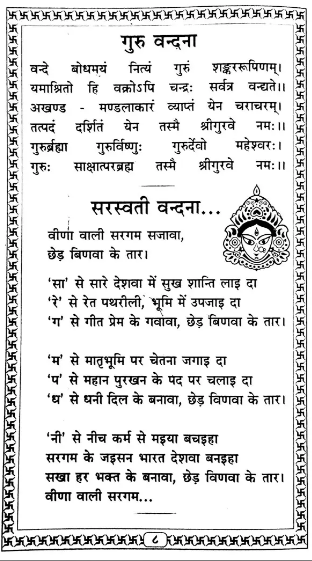 गुरु वन्दना
वन्दे बोधमयं नित्यं गुरुं शङ्कररूपिणम्।
यमाश्रितो हि वक्रोऽपि चन्द्रः सर्वत्र वन्द्यते।।
अखण्ड - मण्डलाकारं व्याप्तं येन चराचरम्।
तत्पदं दर्शितं येन तस्मै श्रीगुरवे नमः।।
गुरुर्ब्रह्मा गुरुर्विष्णुः गुरुर्देवो महेश्वरः।
गुरुः साक्षात्परब्रह्म तस्मै श्रीगुरवे नमः।।
सरस्वती वन्दना...
वीणा वाली सरगम सजावा,
छेड़ बिणवा के तार।
‘सा’ से सारे देशवा में सुख शान्ति लाइ दा
‘रे’ से रेत पथरीली, भूमि में उपजाइ दा
‘ग’ से गीत प्रेम के गवांवा, छेड़ बिणवा के तार।
‘म’ से मातृभूमि पर चेतना जगाइ दा
‘प’ से महान पुरखन के पद पर चलाइ दा
‘ध’ से धनी दिल के बनावा, छेड़ विणवा के तार।
‘नी’ से नीच कर्म से मइया बचइहा
सरगम के जइसन भारत देशवा बनइहा
सखा हर भक्त के बनावा, छेड़ विणवा के तार।
वीणा वाली सरगम...
८